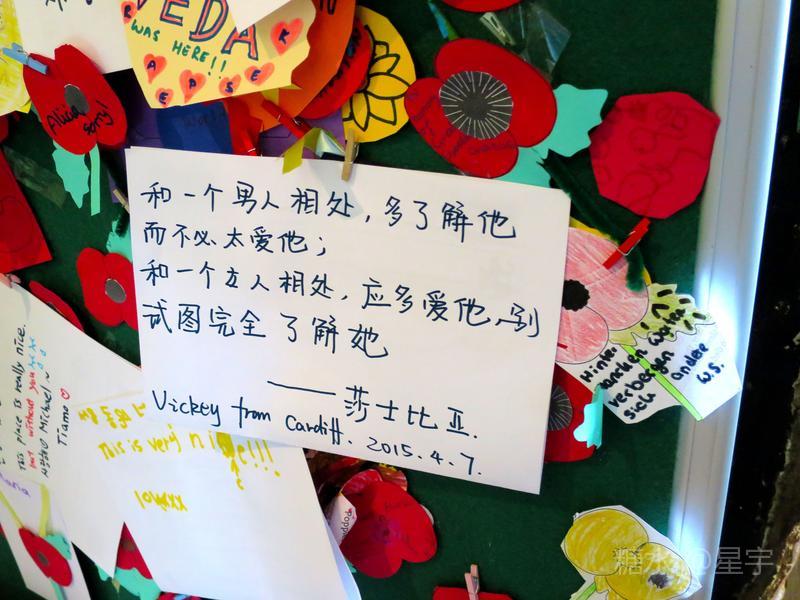 VEDA
WAS HERE!!
Alicia
sorry!
和一个男人相处，多了解他
而不必太爱他；
和一个女人相处，应多爱他，别
试图完全了解她
——莎士比亚.
Vickey from Cardiff. 2015.4.7.
This place is really nice.
but without you
Michael
Tiamo
This is very nice!!!
Hinter
manchen Worten
verbergen
sich
andere
W.S.
糖水@星宇